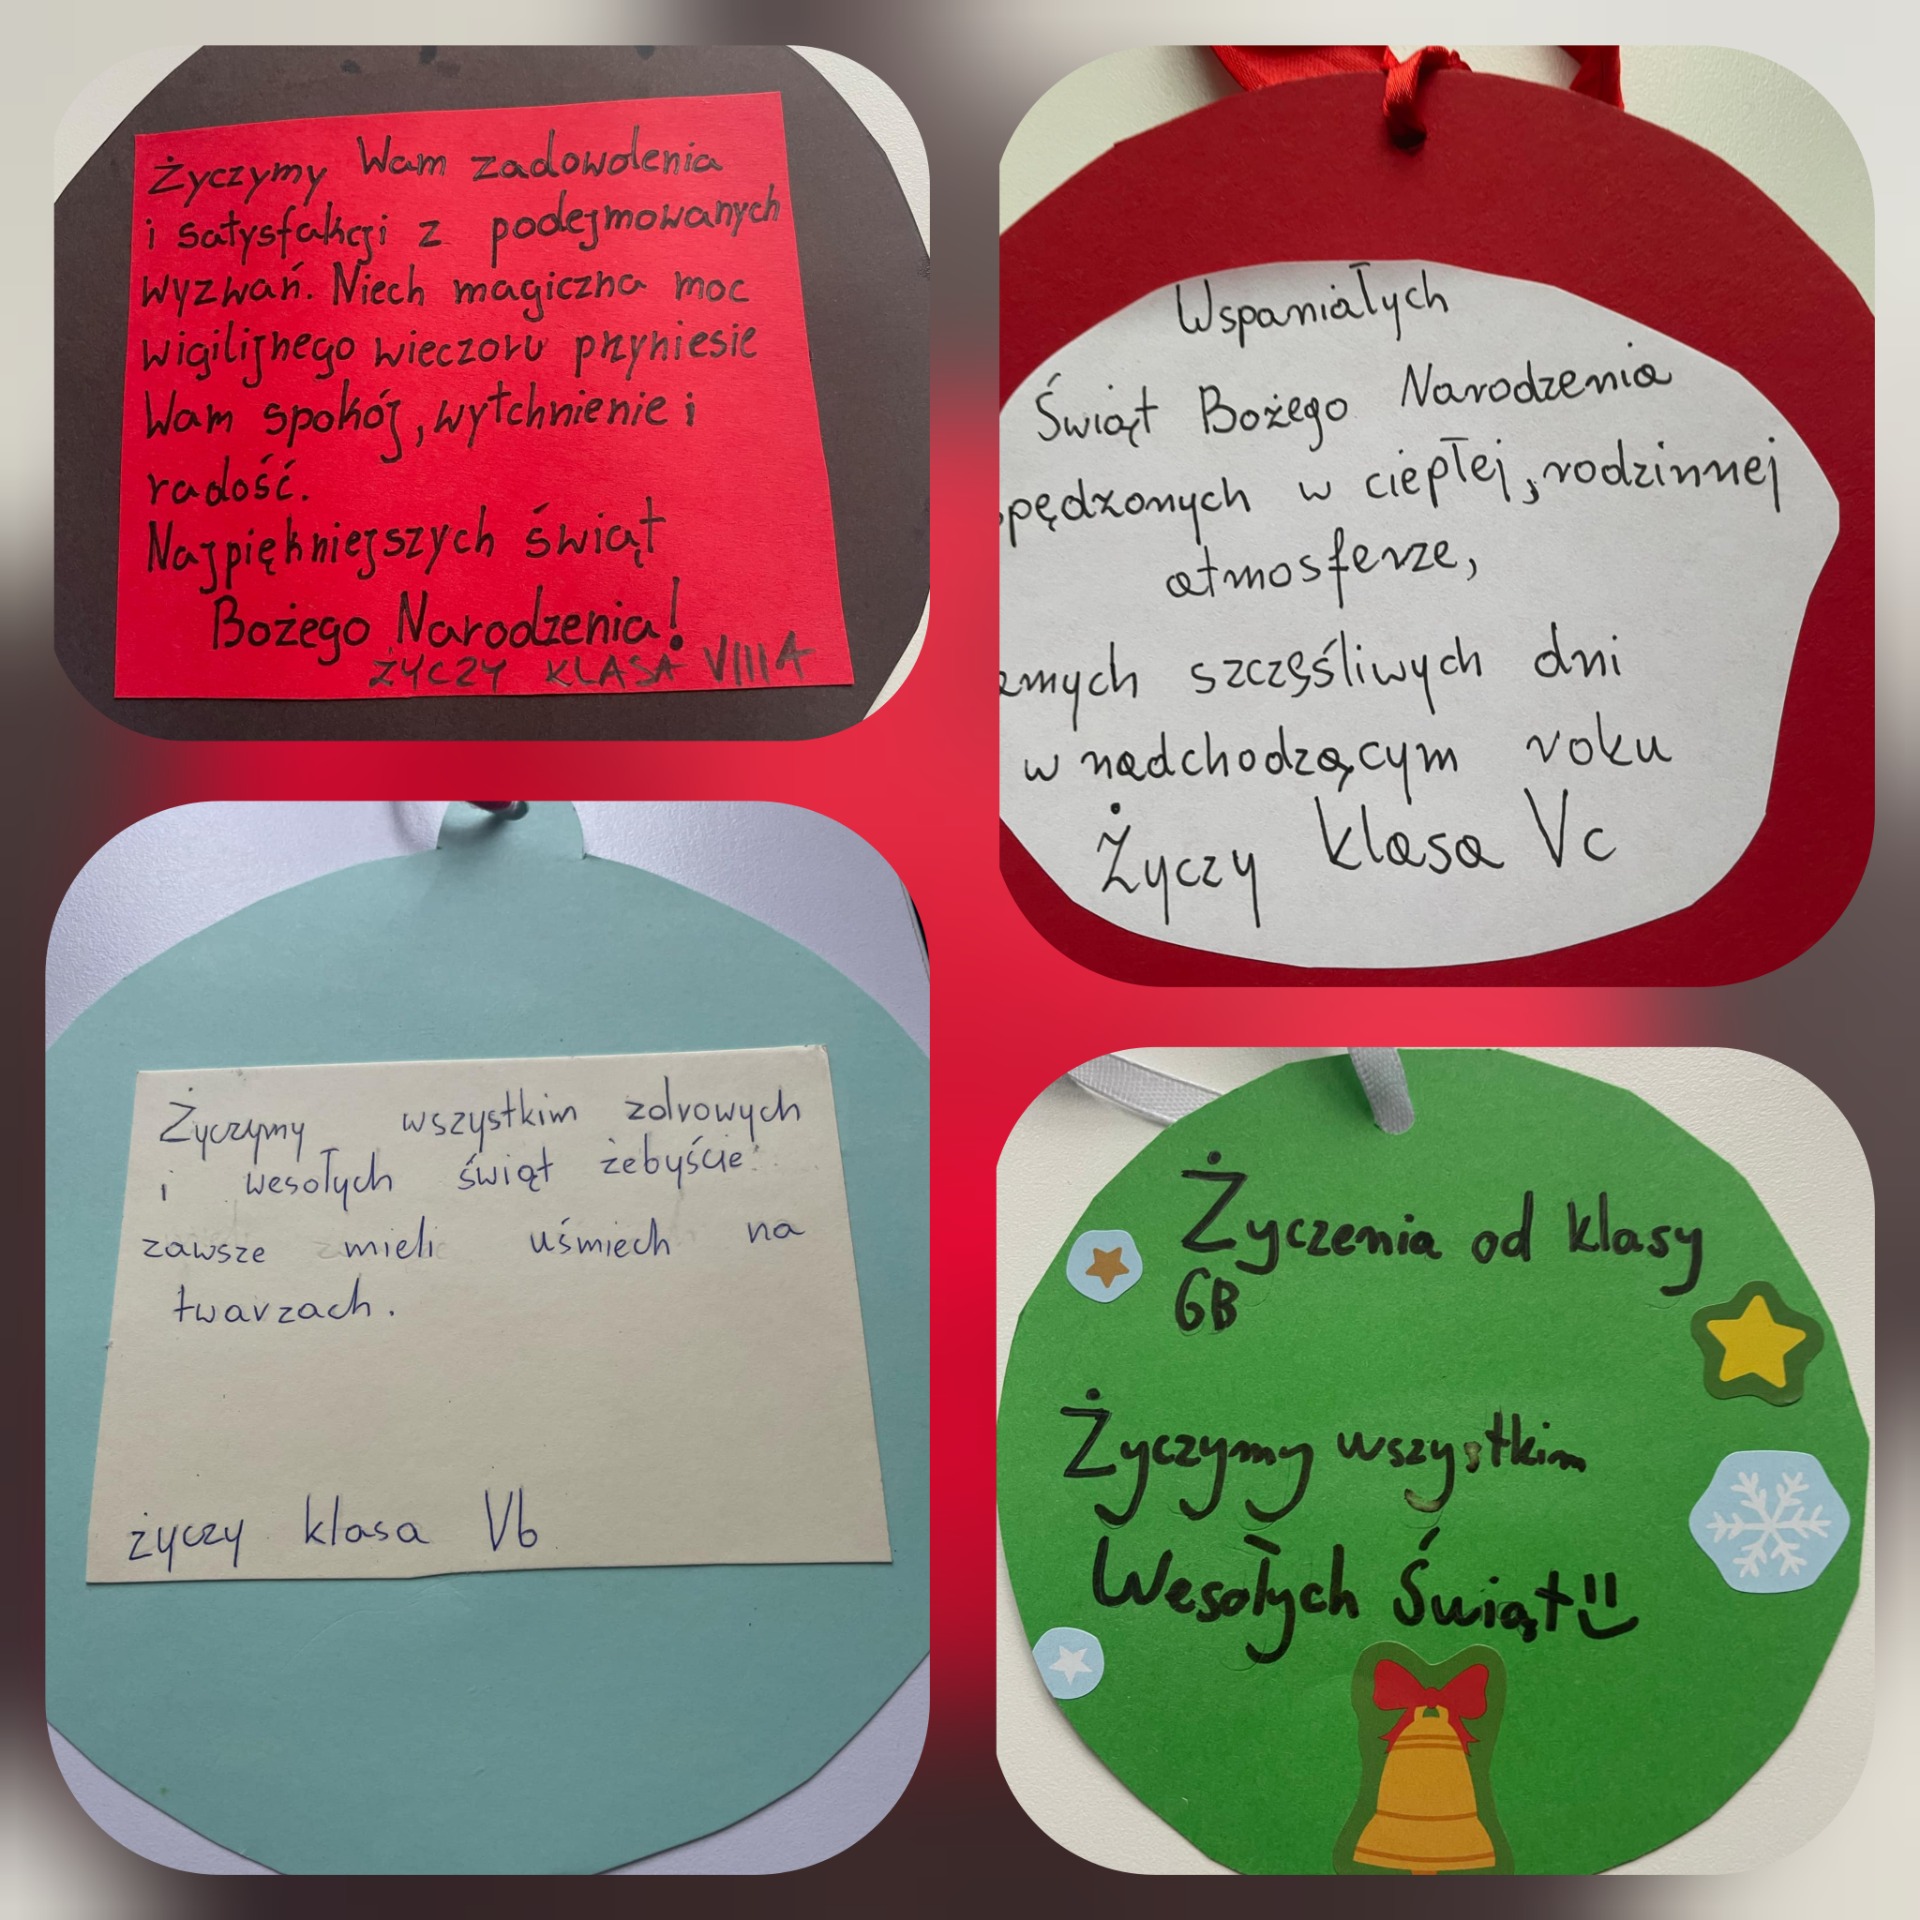 Życzymy Wam zadowolenia
i satysfakcji z podejmowanych
wyzwań. Niech magiczna moc
wigilijnego wieczoru przyniesie
Wam spokój, wytchnienie i
radość.
Najpiękniejszych świąt
Bożego Narodzenia!
ŻYCZY KLASA VIIIA
Wspaniałych
Świąt Bożego Narodzenia
pędzonych w ciepłej, rodzinnej
atmosferze,
szczęśliwych dni
w nadchodzącym roku
Życzy klasa Vc
Życzymy wszystkim zdrowych
i wesołych świąt żebyście
zawsze mieli uśmiech na
twarzach.
życzy klasa Vb
Życzenia od klasy
6B
Życzymy wszystkim
Wesołych Świąt